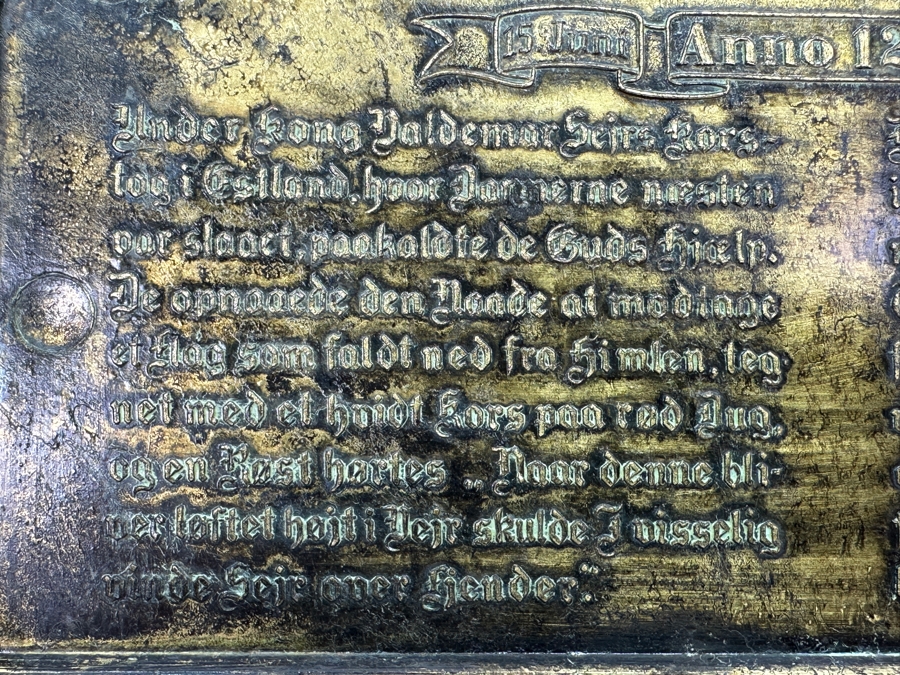 15 Juni Anno 12
Under Kong Valdemar Sejrs Kors-
tog i Estland, hvor Dannerne næsten
var slaaet, paakaldte de Guds Hjælp.
De opnaaede den Naade at modtage
et Flag som faldt ned fra Himlen, teg
net med et hvidt Kors paa rød Dug,
og en Røst hørtes „Naar denne bli-
ver løftet højt i Vejr skulde I visselig
vinde Sejr over Fjender.“